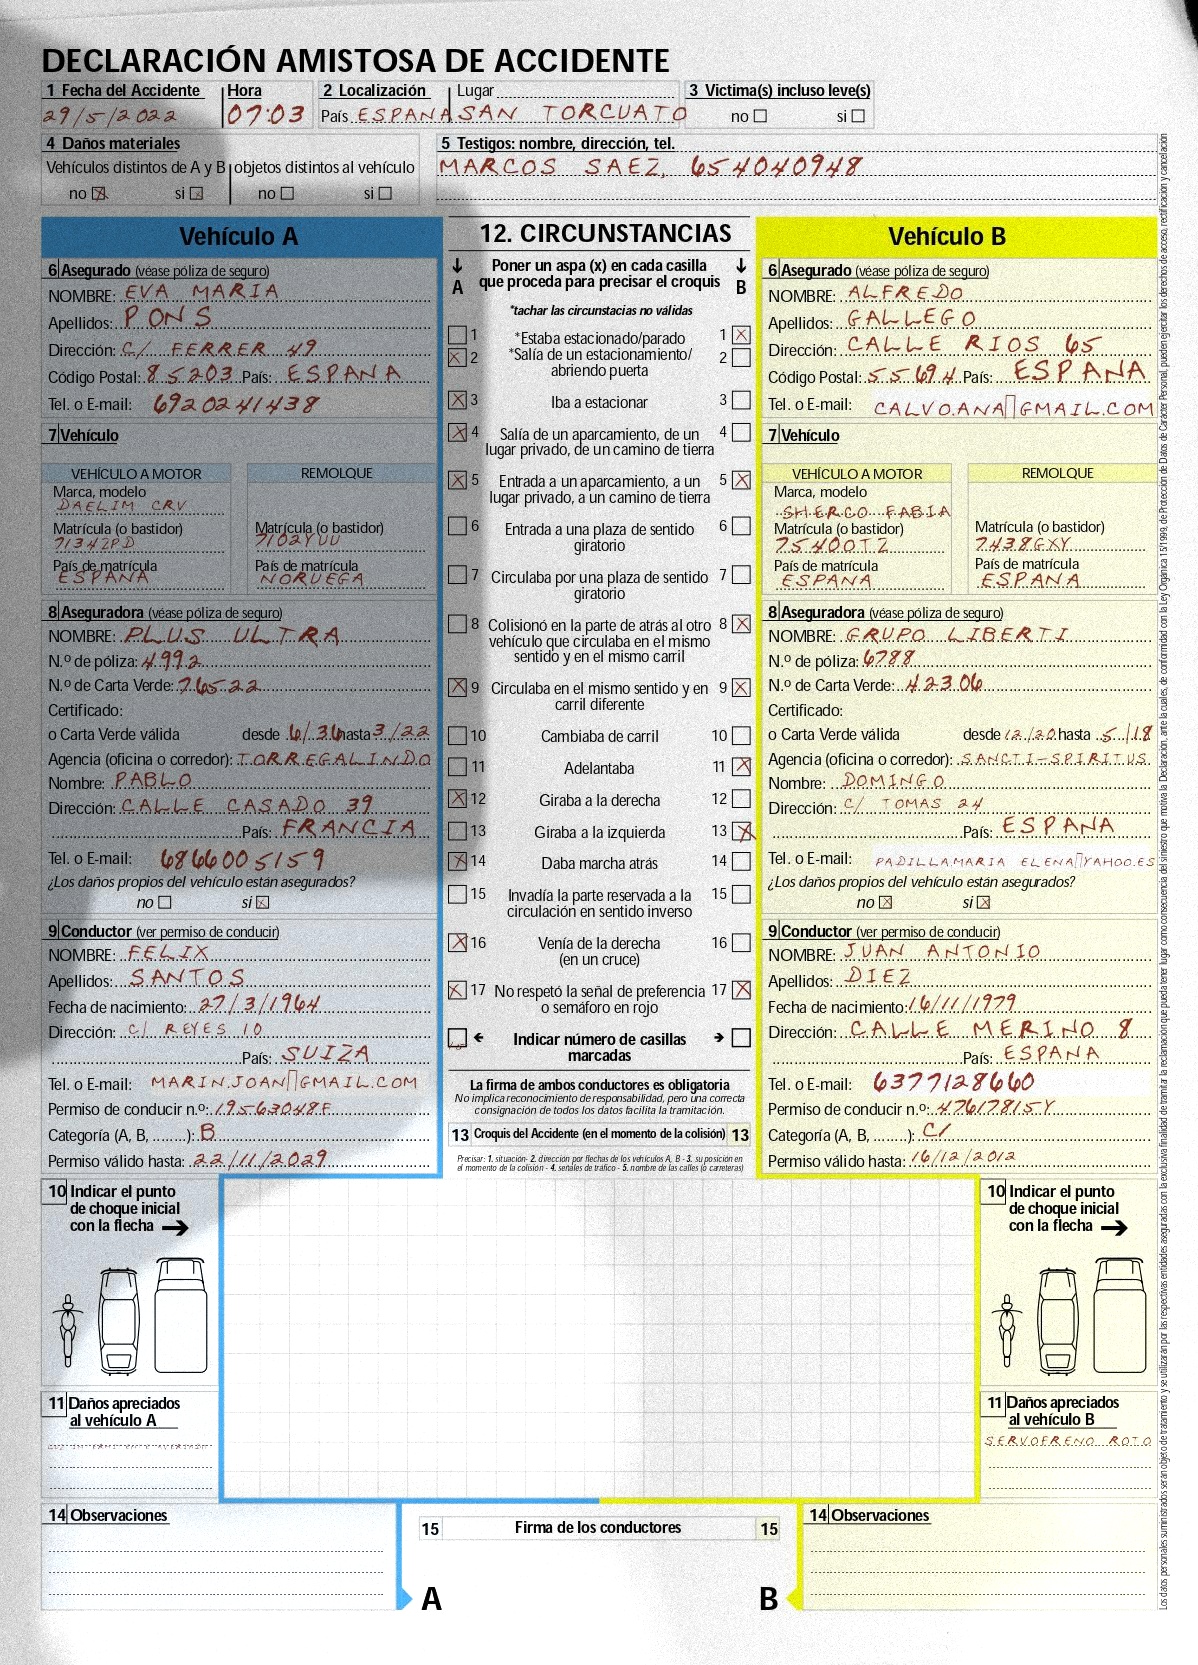 DECLARACIÓN AMISTOSA DE ACCIDENTE
1 Fecha del Accidente Hora 2 Localización Lugar 3 Victima(s) incluso leve(s)
29/5/2022 07:03 País ESPAÑA SAN TORCUATO no ☐ si ☐
4 Daños materiales 5 Testigos: nombre, dirección, tel.
Vehículos distintos de A y B objetos distintos al vehículo MARCOS SAEZ, 654040948
no ☒ si ☒ no ☐ si ☐
Vehículo A
6 Asegurado (véase póliza de seguro)
NOMBRE: EVA MARIA
Apellidos: PONS
Dirección: C/ FERRER 49
Código Postal: 85203 País: ESPAÑA
Tel. o E-mail: 6920241438
7 Vehículo
VEHÍCULO A MOTOR REMOLQUE
Marca, modelo
DAELIM CRV
Matrícula (o bastidor) Matrícula (o bastidor)
71342PD 7102YUU
País de matrícula País de matrícula
ESPAÑA NORUEGA
8 Aseguradora (véase póliza de seguro)
NOMBRE: PLUS ULTRA
N.º de póliza: 4992
N.º de Carta Verde: 76522
Certificado:
o Carta Verde válida desde 6/36 hasta 3/22
Agencia (oficina o corredor): TORREGALINDO
Nombre: PABLO
Dirección: CALLE CASADO 39
País: FRANCIA
Tel. o E-mail: 6866005159
¿Los daños propios del vehículo están asegurados?
no ☐ si ☒
9 Conductor (ver permiso de conducir)
NOMBRE: FELIX
Apellidos: SANTOS
Fecha de nacimiento: 27/3/1964
Dirección: C/ REYES 10
País: SUIZA
Tel. o E-mail: MARIN.JOAN▯GMAIL.COM
Permiso de conducir n.º: 19563048F
Categoría (A, B, ........): B
Permiso válido hasta: 22/11/2029
12. CIRCUNSTANCIAS
A Poner un aspa (x) en cada casilla que proceda para precisar el croquis B
*tachar las circunstacias no válidas
☐ 1 *Estaba estacionado/parado 1 ☒
☒ 2 *Salía de un estacionamiento/ 2 ☐
abriendo puerta
☒ 3 Iba a estacionar 3 ☐
☒ 4 Salía de un aparcamiento, de un 4 ☐
lugar privado, de un camino de tierra
☒ 5 Entrada a un aparcamiento, a un 5 ☒
lugar privado, a un camino de tierra
☐ 6 Entrada a una plaza de sentido 6 ☐
giratorio
☐ 7 Circulaba por una plaza de sentido 7 ☐
giratorio
☐ 8 Colisionó en la parte de atrás al otro 8 ☒
vehículo que circulaba en el mismo
sentido y en el mismo carril
☒ 9 Circulaba en el mismo sentido y en 9 ☒
carril diferente
☐ 10 Cambiaba de carril 10 ☐
☐ 11 Adelantaba 11 ☒
☒ 12 Giraba a la derecha 12 ☐
☐ 13 Giraba a la izquierda 13 ☒
☒ 14 Daba marcha atrás 14 ☐
☐ 15 Invadía la parte reservada a la 15 ☐
circulación en sentido inverso
☒ 16 Venía de la derecha 16 ☐
(en un cruce)
☒ 17 No respetó la señal de preferencia 17 ☒
o semáforo en rojo
Indicar número de casillas
marcadas
La firma de ambos conductores es obligatoria
No implica reconocimiento de responsabilidad, pero una correcta
consignación de todos los datos facilita la tramitación.
13 Croquis del Accidente (en el momento de la colisión) 13
Precisar: 1. situación- 2. dirección por flechas de los vehículos A, B - 3. su posición en
el momento de la colisión - 4. señales de tráfico - 5. nombre de las calles (o carreteras)
Vehículo B
6 Asegurado (véase póliza de seguro)
NOMBRE: ALFREDO
Apellidos: GALLEGO
Dirección: CALLE RIOS 65
Código Postal: 55694 País: ESPAÑA
Tel. o E-mail: CALVO.ANA▯GMAIL.COM
7 Vehículo
VEHÍCULO A MOTOR REMOLQUE
Marca, modelo
SHERCO FABIA
Matrícula (o bastidor) Matrícula (o bastidor)
75400TZ 7438GXY
País de matrícula País de matrícula
ESPAÑA ESPAÑA
8 Aseguradora (véase póliza de seguro)
NOMBRE: GRUPO LIBERTI
N.º de póliza: 6788
N.º de Carta Verde: 42306
Certificado:
o Carta Verde válida desde 12/20 hasta 5/18
Agencia (oficina o corredor): SANCTI-SPIRITUS
Nombre: DOMINGO
Dirección: C/ TOMAS 24
País: ESPAÑA
Tel. o E-mail: PADILLA.MARIA ELENA▯YAHOO.ES
¿Los daños propios del vehículo están asegurados?
no ☒ si ☒
9 Conductor (ver permiso de conducir)
NOMBRE: JUAN ANTONIO
Apellidos: DIEZ
Fecha de nacimiento: 16/11/1979
Dirección: CALLE MERINO 8
País: ESPAÑA
Tel. o E-mail: 6377128660
Permiso de conducir n.º: 47617815Y
Categoría (A, B, ........): C1
Permiso válido hasta: 16/12/2012
10 Indicar el punto
de choque inicial
con la flecha
11 Daños apreciados
al vehículo A
10 Indicar el punto
de choque inicial
con la flecha
11 Daños apreciados
al vehículo B
SERVOFRENO ROTO
14 Observaciones
15 Firma de los conductores 15
A B
14 Observaciones
Los datos personales suministrados serán objeto de tratamiento y se utilizaran por las respectivas entidades aseguradas con la exclusiva finalidad de tramitar la reclamación que pueda tener lugar como consecuencia del siniestro que motiva la Declaración, ante la cuales, de conformidad con la Ley Orgánica 15/1999, de Protección de Datos de Carácter Personal, pueden ejercitar los derechos de acceso, rectificación y cancelación